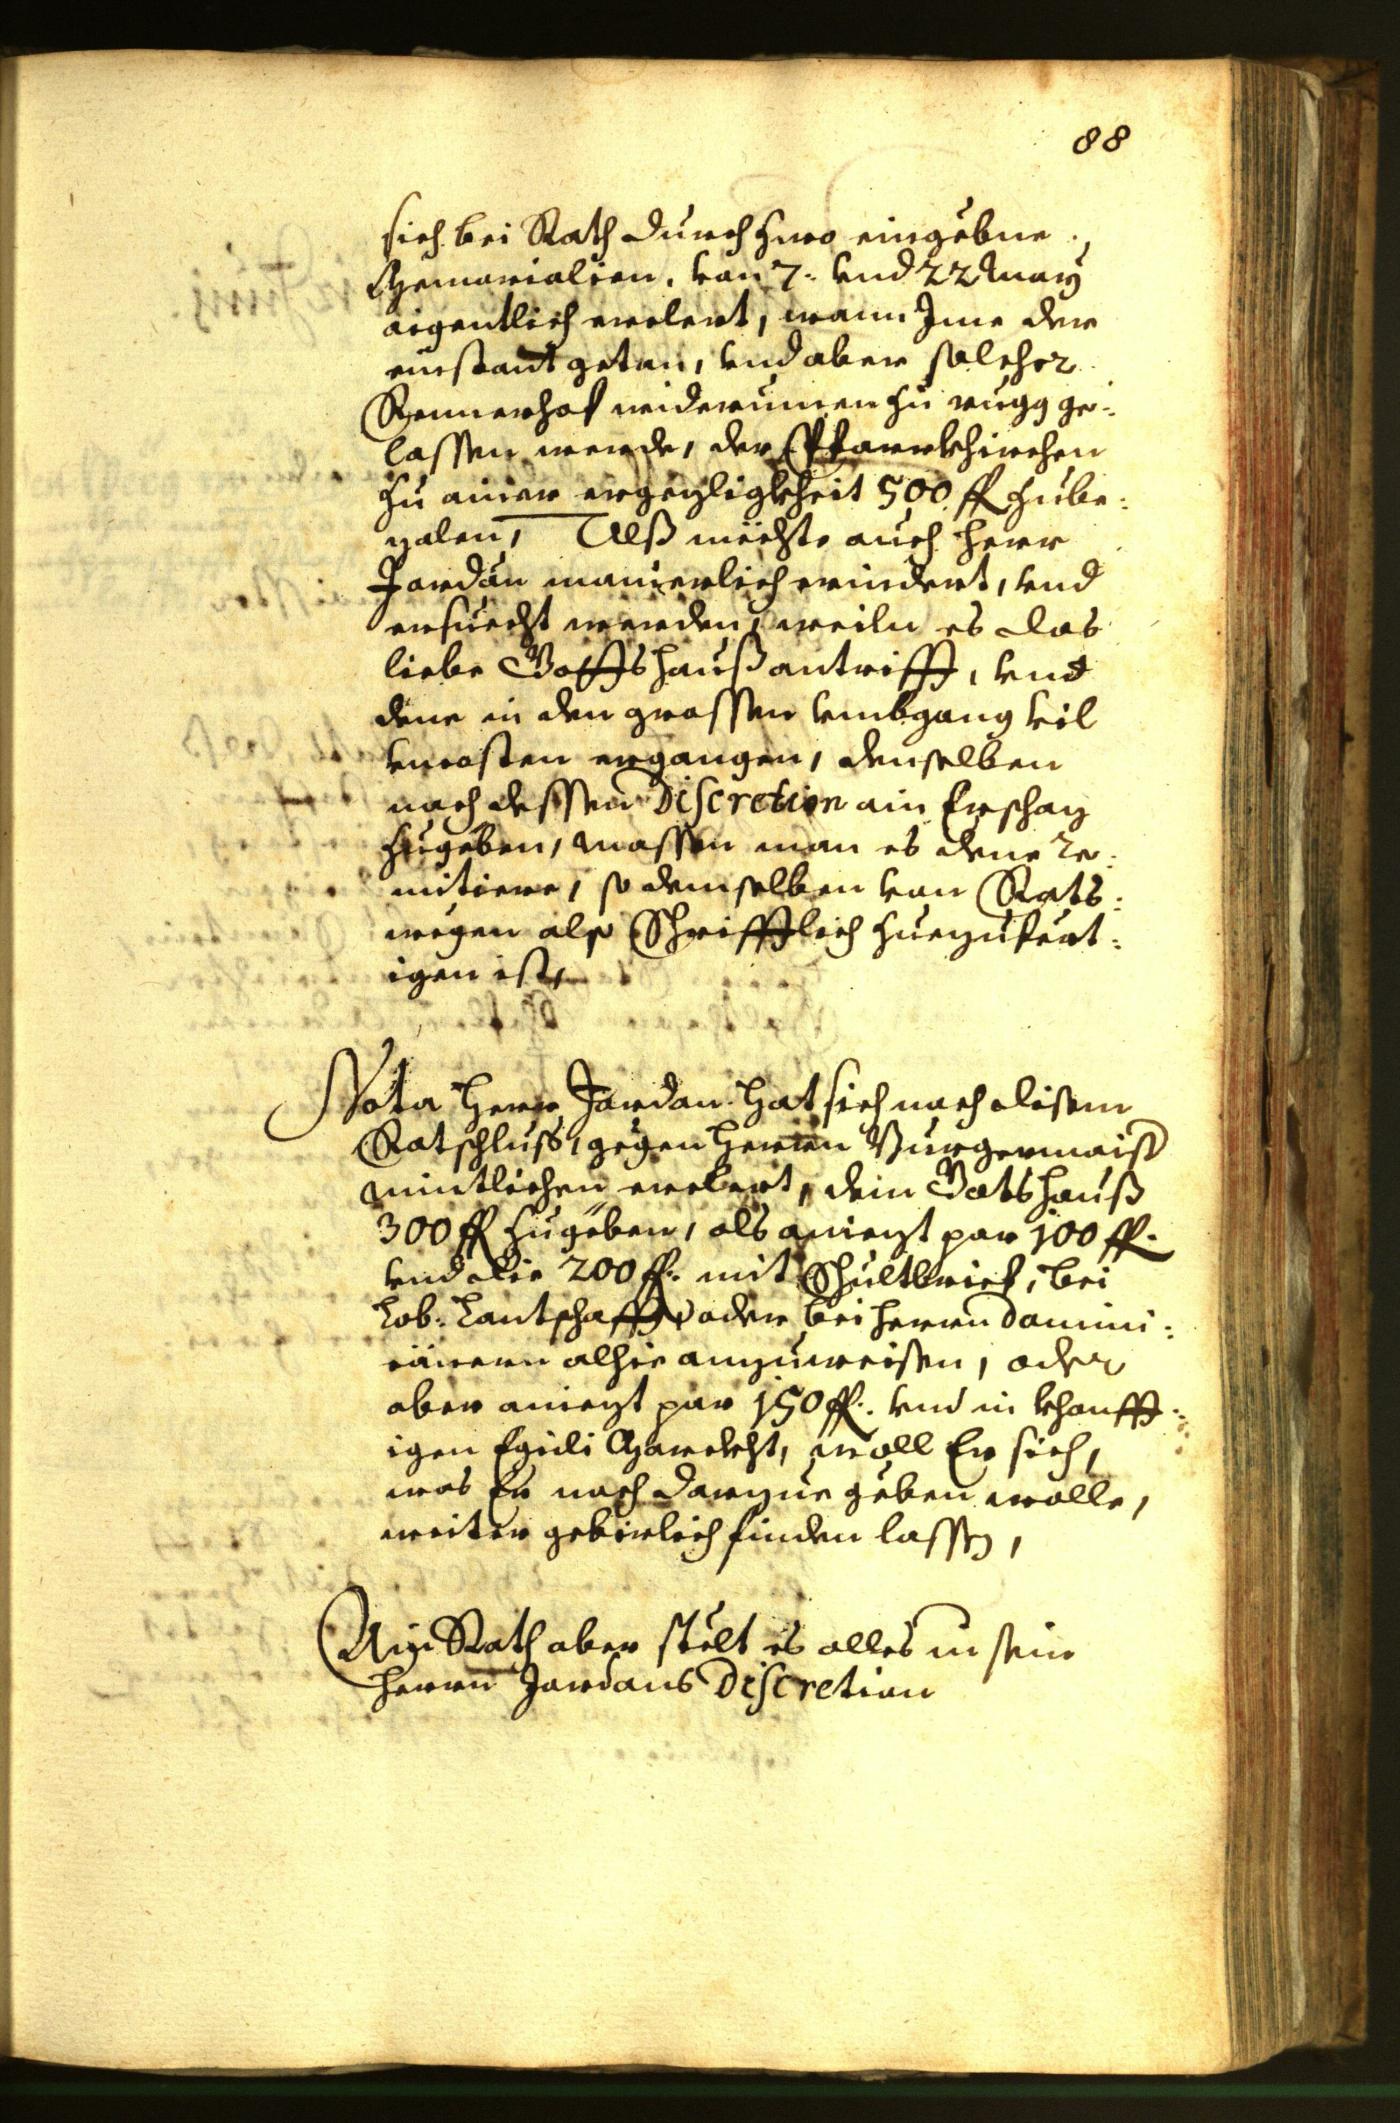 88
sich bei Rath durch zwo eingebne
Memorialien, von 7. vnd 22 Mary
aigentlich erclert, wann Ime der
einstant getan, vnd aber solcher
Rennerhof widerumen zu rugg ge-
lassen werde, der Pfarrkhirchen
zu ainer ergezligkheit 500 fl zube-
zalen, Alß mechte auch Herr
Jordan manierlich erindert, vnd
ersuecht werden, weiln es das
liebe Gottshauß antrifft, vnd
deme in den grossen vmbgang vil
vncosten ergangen, denselben
nach dessen Discretion ain Erschaz
zugeben, massen man es deme re-
mitiere, so demselben von Rats-
wegen also Schrifftlich zuezufert-
igen ist,
Nota Herr Jordan hat sich nach disem
Ratschluss, gegen Herrn Burgermaister
mintlichen erclert, dem Gotshauß
300 fl zugeben, als aniezt par 100 fl.
vnd die 200 fl. mit Schultbrief, bei
Lob. Lantschafft oder bei Herrn Domini-
canern alhie anzuweisen, oder
aber aniezt par 150 fl. vnd in khonfft-
igen Egidi Marckht, woll Er sich,
was Er noch darzue geben wolle,
weiter gebirlich finden lassen,
Ain Rath aber stelt es alles in sein
Herrn Jordans Discretion